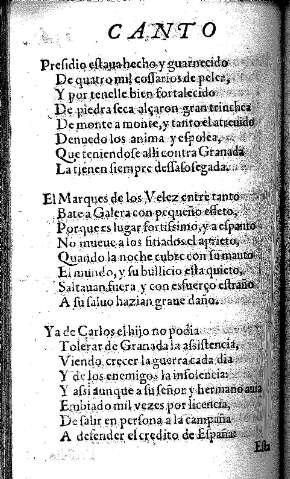 CANTO
Presidio estaua hecho y guarnecido
De quatro mil cossarios de pelea,
Y por tenelle bien fortalecido
De piedra seca alçaron gran trinchea
De monte a monte, y tanto el atreuido
Denuedo los anima y espolea,
Que teniendose alli contra Granada
La tienen siempre dessasossegada.
El Marques de los Velez entre tanto
Bate a Galera con pequeño efeto,
Porque es lugar fortissimo, y a espanto
No mueue a los sitiados el aprieto,
Quando la noche cubre con su manto
El mundo, y su bullicio esta quieto,
Saltauan fuera y con esfuerço estraño
A su saluo hazian graue daño.
Ya de Carlos el hijo no podia
Tolerar de Granada la assistencia,
Viendo crecer la guerra cada dia
Y de los enemigos la insolencia:
Y assi aunque a su señor y hermano auia
Embiado mil vezes por licencia,
De salir en persona a la campaña
A defender el credito de España: